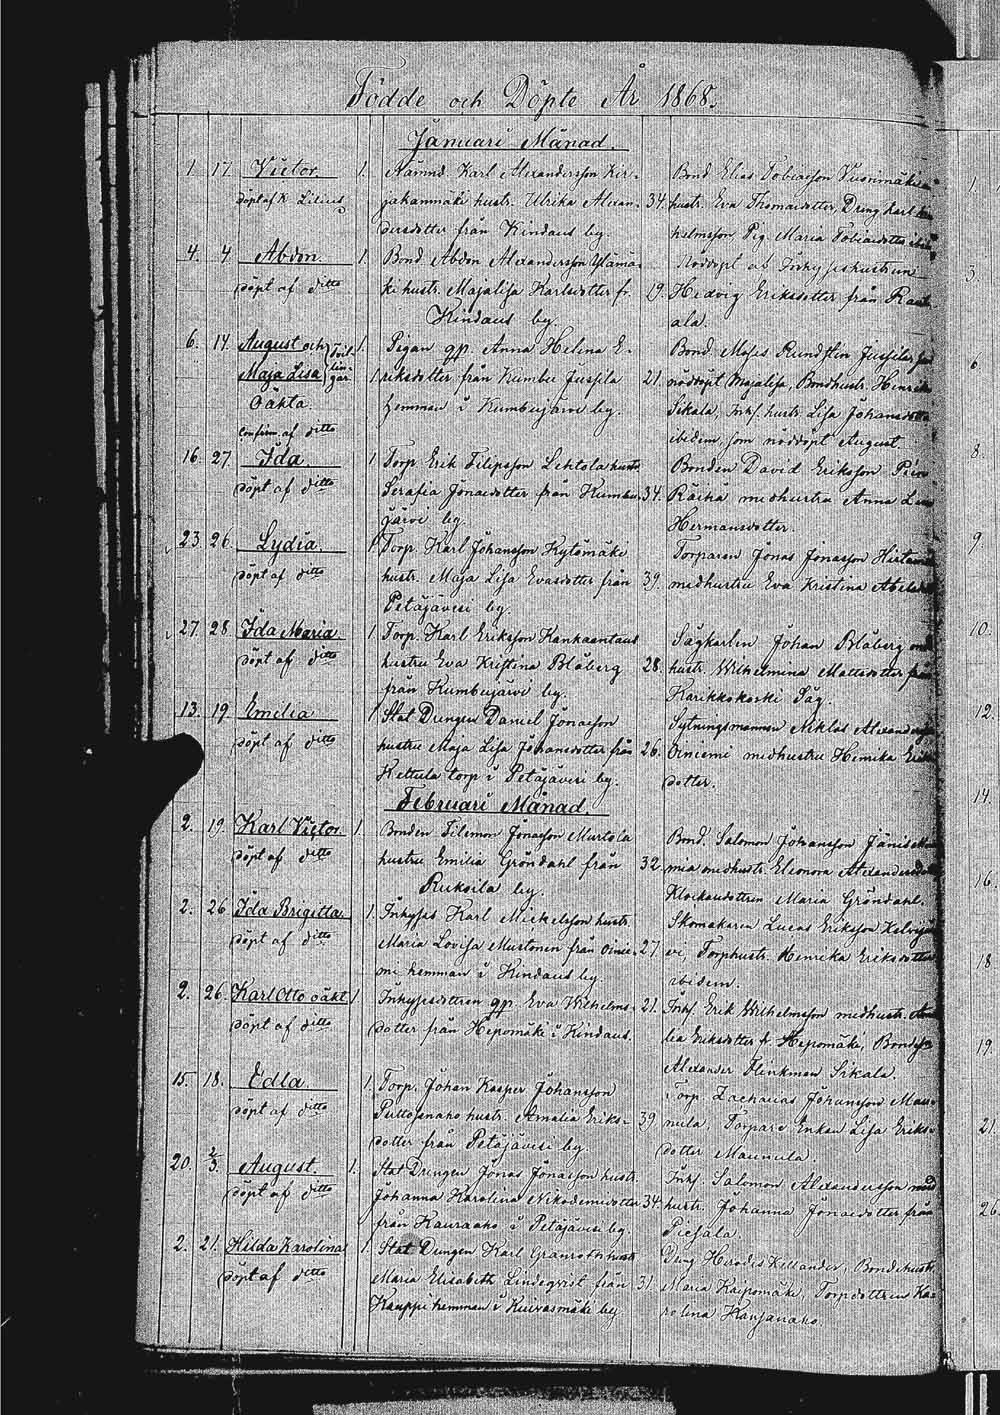 Födde och Döpte År 1868.
Januari Månad.
1. 17. Victor. 1. Nämnd Karl Alexandersson Kir- Bond Elias Tobiasson Vuorimäki
döpt af K. Lilius jakanmäki hustr. Ulrika Alexan- 34. hustr. Eva Thomasdotter, Dreng Karl
dersdotter från Kindaus by. helmsson Pig. Maria Tobiasdotter
4. 4. Abdon. 1. Bond Abdon Alexandersson Ylämä- Nöddöpt af Inhyseshustrun
döpt af ditto ki hustr. Majalisa Karlsdotter fr. 19. Hedvig Eriksdotter från
Kindaus by. ala.
6. 14. August och Tvil- 1. Pigan gp. Anna Helena E- Bond. Moses Rundsten Jussila
Maja Lisa lin- 1 riksdotter från Kumbu Jussila 21. nöddöpt Majalisa, Bondhustr. Henrika
gar
Oäkta. hemman i Kumbujärvi by. Sikala, Inhs. hustr. Lisa Johansdotter
confirm. af ditto ibidem, som nöddöpt August
16. 27. Ida. 1 Torp. Erik Filipsson Lehtola hustr. Bonden David Eriksson
döpt af ditto Serafia Jonaedotter från Kumbu- 34. Räihä medhustru Anna
järvi by. Hermansdotter.
23. 26. Lydia. 1 Torp. Karl Johansson Kytömäki Torparen Jonas Jonasson
döpt af ditto hustr. Maja Lisa Evasdotter från 39. medhustru Eva Kristina
Petäjävesi by.
27. 28. Ida Maria. 1 Torp. Karl Eriksson Kankaantaus Sågkarlen Johan Blåberg
döpt af ditto hustru Eva Kristina Blåberg 28. hustr. Wilhelmina Mattsdotter från
från Kumbujärvi by. Karikkokoski Såg.
13. 19. Emilia 1 Stat Drengen Daniel Jonasson Sytningsmannen Niklas Alexandersson
döpt af ditto hustru Maja Lisa Johansdotter från 26. Oiniemi medhustru Henrika
Kettula torp i Petäjävesi by. dotter.
Februari Månad.
2. 19. Karl Victor. 1. Bonden Filemon Jonasson Murtola Bond. Salomon Johansson
döpt af ditto hustru Emilia Gröndahl från 32. mia medhustr. Eleonora Alexandersdotter
Ruksila by. Klockaredottren Maria Gröndahl.
2. 26 Ida Brigitta 1. Inhyses Karl Mickelsson hustr. Skomakaren Lucas Eriksson
döpt af ditto Maria Lovisa Mustonen från Oinie- 27. vi, Torphustr. Henrika Eriksdotter
mi hemman i Kindaus by. ibidem.
2. 26. Karl Otto oäkt. 1 Inhysesdottren gp. Eva Wilhelms- 21. Inhs. Erik Wilhelmsson medhustr.
döpt af ditto dotter från Hepomäki i Kindaus. lea Eriksdotter fr. Hepomäki, Bondes
Alexander Flinkman Sikala.
15. 18. Edla. 1. Torp. Johan Kasper Johansson Torp Zacharias Johansson Mau-
döpt af ditto Puttosnaho hustr. Amalia Eriks- 29. nula, Torpare Enkan Lisa Eriks-
dotter från Petäjävesi by. dotter Maunula.
20. 2/3. August. 1. Stat Drengen Jonas Jonasson hustr. Inhs. Salomon Alexandersson med
döpt af ditto Johanna Karolina Nikodemidotter 34. hustr. Johanna Jonaedotter från
från Kauraaho i Petäjävesi by. Piesala.
2. 21. Hilda Karolina 1. Stat Dungen Karl Granroth hustr. Dreng Herodes Kellander, Bondehustr.
döpt af ditto Maria Elisabeth Lindeqvist från 31. Maria Kaipomäki, Torpdottren Ka-
Kauppi hemman i Kuivasmäki by rolina Kanganaho.